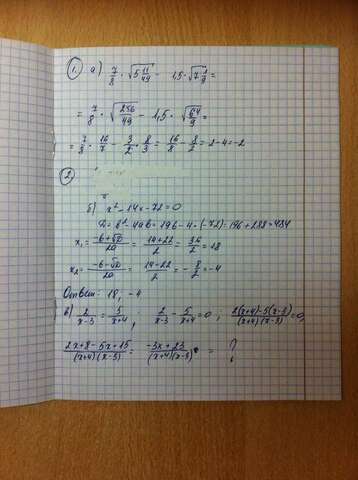 1. а) 7/8 · √(5 11/49) - 1,5 · √(7 1/9) =
= 7/8 · √(256/49) - 1,5 · √(64/9) =
= 7/8 · 16/7 - 3/2 · 8/3 = 16/8 - 8/2 = 2-4 = -2
2.
б) x² - 14x - 72 = 0
D = b² - 4ac = 196 - 4·(-72) = 196 + 288 = 484
x₁ = (-b+√D)/2a = (14+22)/2 = 36/2 = 18
x₂ = (-b-√D)/2a = (14-22)/2 = -8/2 = -4
Ответ: 18, -4
в) 2/(x-3) = 5/(x+4), 2/(x-3) - 5/(x+4) = 0; (2(x+4)-5(x-3))/((x+4)(x-3)) = 0,
(2x+8-5x+15)/((x+4)(x-3)) = (-3x+23)/((x+4)(x-3)) = ?